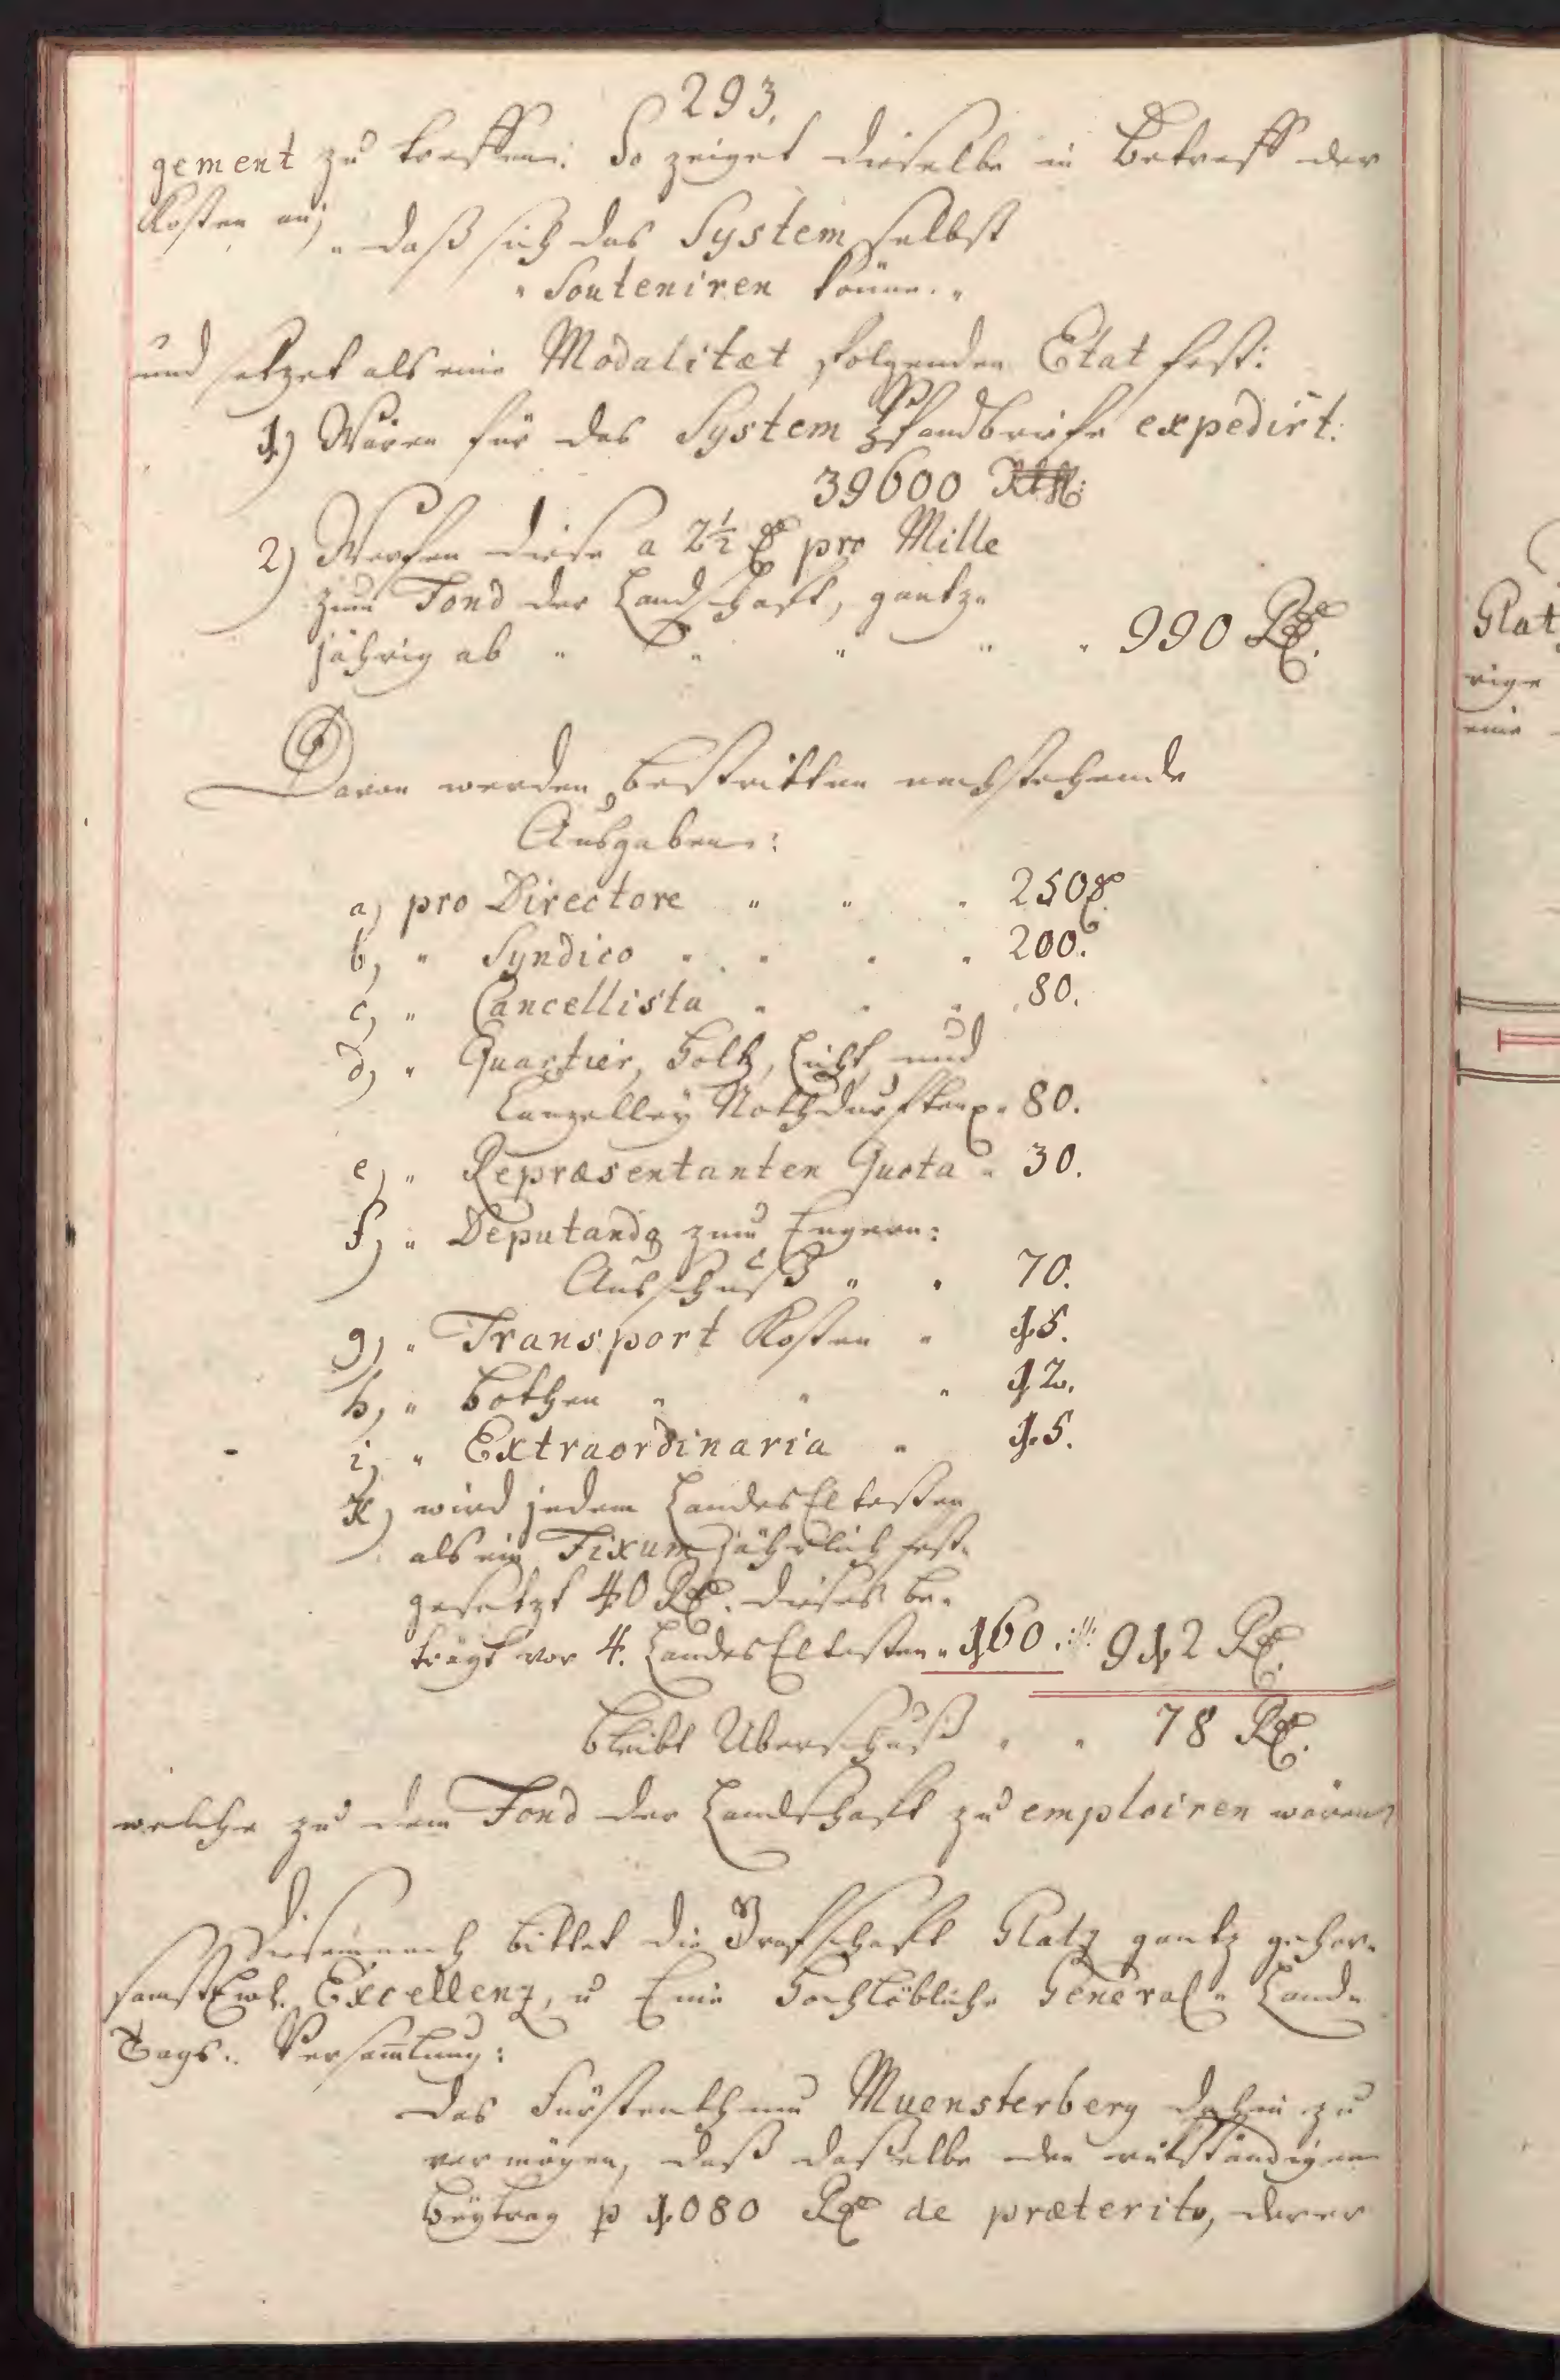 293.
gement zu treffen: So zeiget dieselbe in Betreff der
Kosten an,
„ daß sich das System selbst
„ Souteniren könne. „
und setzet als eine Modalitæt folgenden Etat fest:
1) Wären für das System Pfandbriefe expedirt:
39600 Rthl:
2) Werfen diese a 2½ rl pro Mille
zum Fond der Landschaft, gantz„
jährig ab „ „ „ „ „ 990 Rl.
Davon werden bestritten nachstehende
Ausgaben:
a) pro Directore „ „ „ 250 rl.
b) „ Syndico „ „ „ „ 200.
c) „ Cancellista „ „ „ 80.
d) „ Quartier, Holtz, Licht, und
Canzelley Nothdurften „ 80.
e) „ Repræsentanten Quota „ 30.
f) „ Deputando zum Engern:
Ausschuß „ „ 70.
g) „ Transport Kosten „ 15.
h) „ Bothen „ „ „ 12.
i) „ Extraordinaria „ 15.
K) wird jedem LandesEltesten
als ein Fixum jährlich fest„
gesetzt 40 Rl. dieses be„
trägt vor 4. LandesEltesten „ 160. 912 Rl.
bleibt Uberschuß „ „ 78 Rl.
welche zu dem Fond der Landschaft zu emploiren wären
Diesemnach bittet die Graffschafft Glatz gantz gehor„
samst Ewl. Excellenz, u Eine Hochlöbliche General„ Land„
Tags„ Versam̄lung:
Das Fürstenthum Muensterberg dahin zu
vermögen, daß dasselbe den rükständigen
Beytrag p 1080 Rl de præterito, derer
Glat
rige
eine